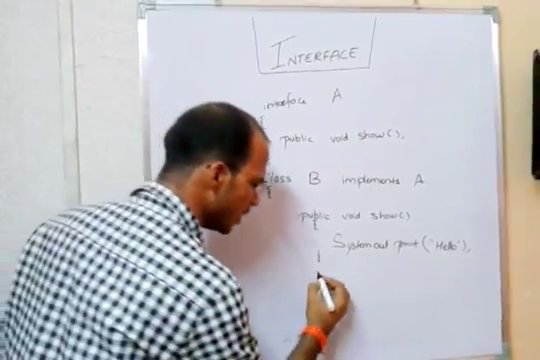 INTERFACE
interface A
{
public void show();
class B implements A
{
public void show()
{
System.out.print("Hello");